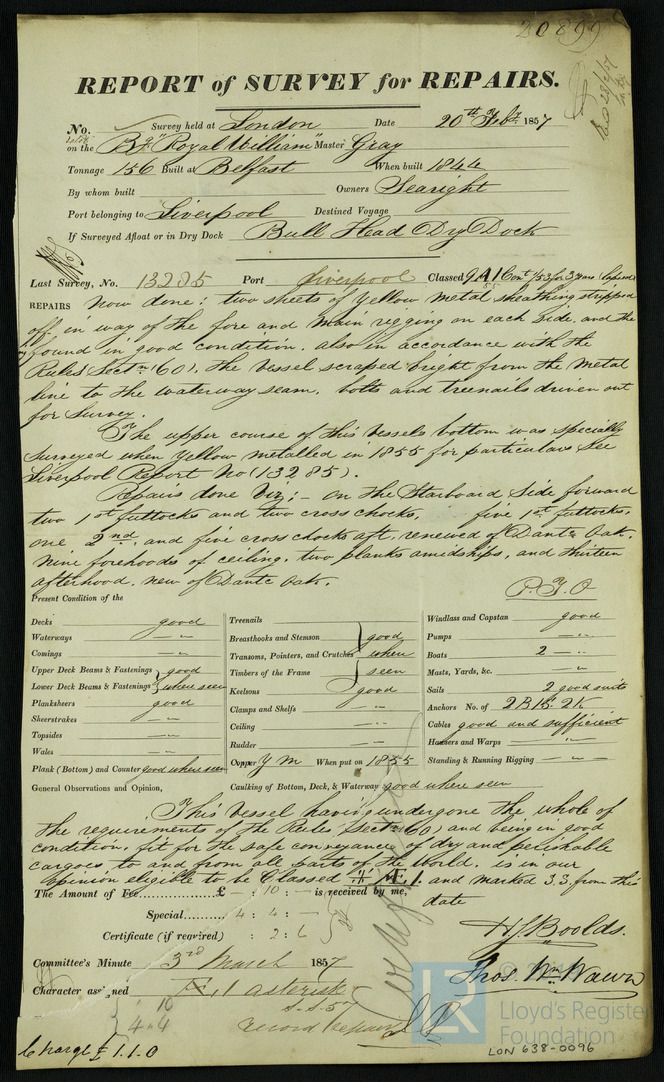 20899
REPORT of SURVEY for REPAIRS.
No. Survey held at London Date 20th Feby. 1857
on the Bg "Royal William" Master Gray
Tonnage 156 Built at Belfast When built 1844
By whom built Owners Searight
Port belonging to Liverpool Destined Voyage
If Surveyed Afloat or in Dry Dock Bull Head Dry Dock
Last Survey, No. 13285 Port Liverpool Classed 9 A1 Cont 1/53 for 3 years lapsed
REPAIRS now done: two sheets of yellow metal sheathing stripped
off in way of the fore and main rigging on each side, and the
found in good condition. also in accordance with the
Rules Sectn (60), the vessel scraped bright from the metal
line to the waterway seam, bolts and treenails driven out
for Survey.
The upper course of this vessels bottom was specially
surveyed when yellow metalled in 1855 for particulars see
Liverpool Report No (13285).
Repairs done Viz; - on the Starboard Side forward
two 1st futtocks and two cross chocks, five 1st futtocks,
one 2nd, and five cross chocks aft, renewed of Dantc Oak.
nine forehoods of ceiling, two planks amidships, and thirteen
afterhood, new of Dantc Oak.
P.T.O
Present Condition of the
Decks good
Waterways - " -
Comings - " -
Upper Deck Beams & Fastenings good
Lower Deck Beams & Fastenings where seen
Planksheers good
Sheerstrakes - " -
Topsides - " -
Wales - " -
Plank (Bottom) and Counter good where seen
Treenails
Breasthooks and Stemson good
Transoms, Pointers, and Crutches when
Timbers of the Frame seen
Keelsons good
Clamps and Shelfs - " -
Ceiling - " -
Rudder - " -
Copper Y M When put on 1855
Windlass and Capstan good
Pumps - " -
Boats 2 - " -
Masts, Yards, &c. - " -
Sails 2 good suits
Anchors No. of 2 B 1 S. 2 K
Cables good and sufficient
Hawsers and Warps "
Standing & Running Rigging - " -
General Observations and Opinion, Caulking of Bottom, Deck, & Waterway good where seen
This vessel having undergone the whole of
the requirements of the Rules, Sectn (60) and being in good
condition, fit for the safe conveyance of dry and perishable
cargoes to and from all parts of the world, is in our
opinion eligible to be Classed Æ 1. and marked 3.3. from this
date
The Amount of Fee £ - : 10 : - is received by me,
Special 4 : 4 : -
Certificate (if required) : 2 : 6
H J Boolds.
Thos. Wm Wawn
Committee's Minute 3rd March 1857
Character assigned Æ 1 asterisk
10
4 " 4
record Repairs
Charge £ 1.1.0
LR
Lloyd's Register
Foundation
LON 638-0096